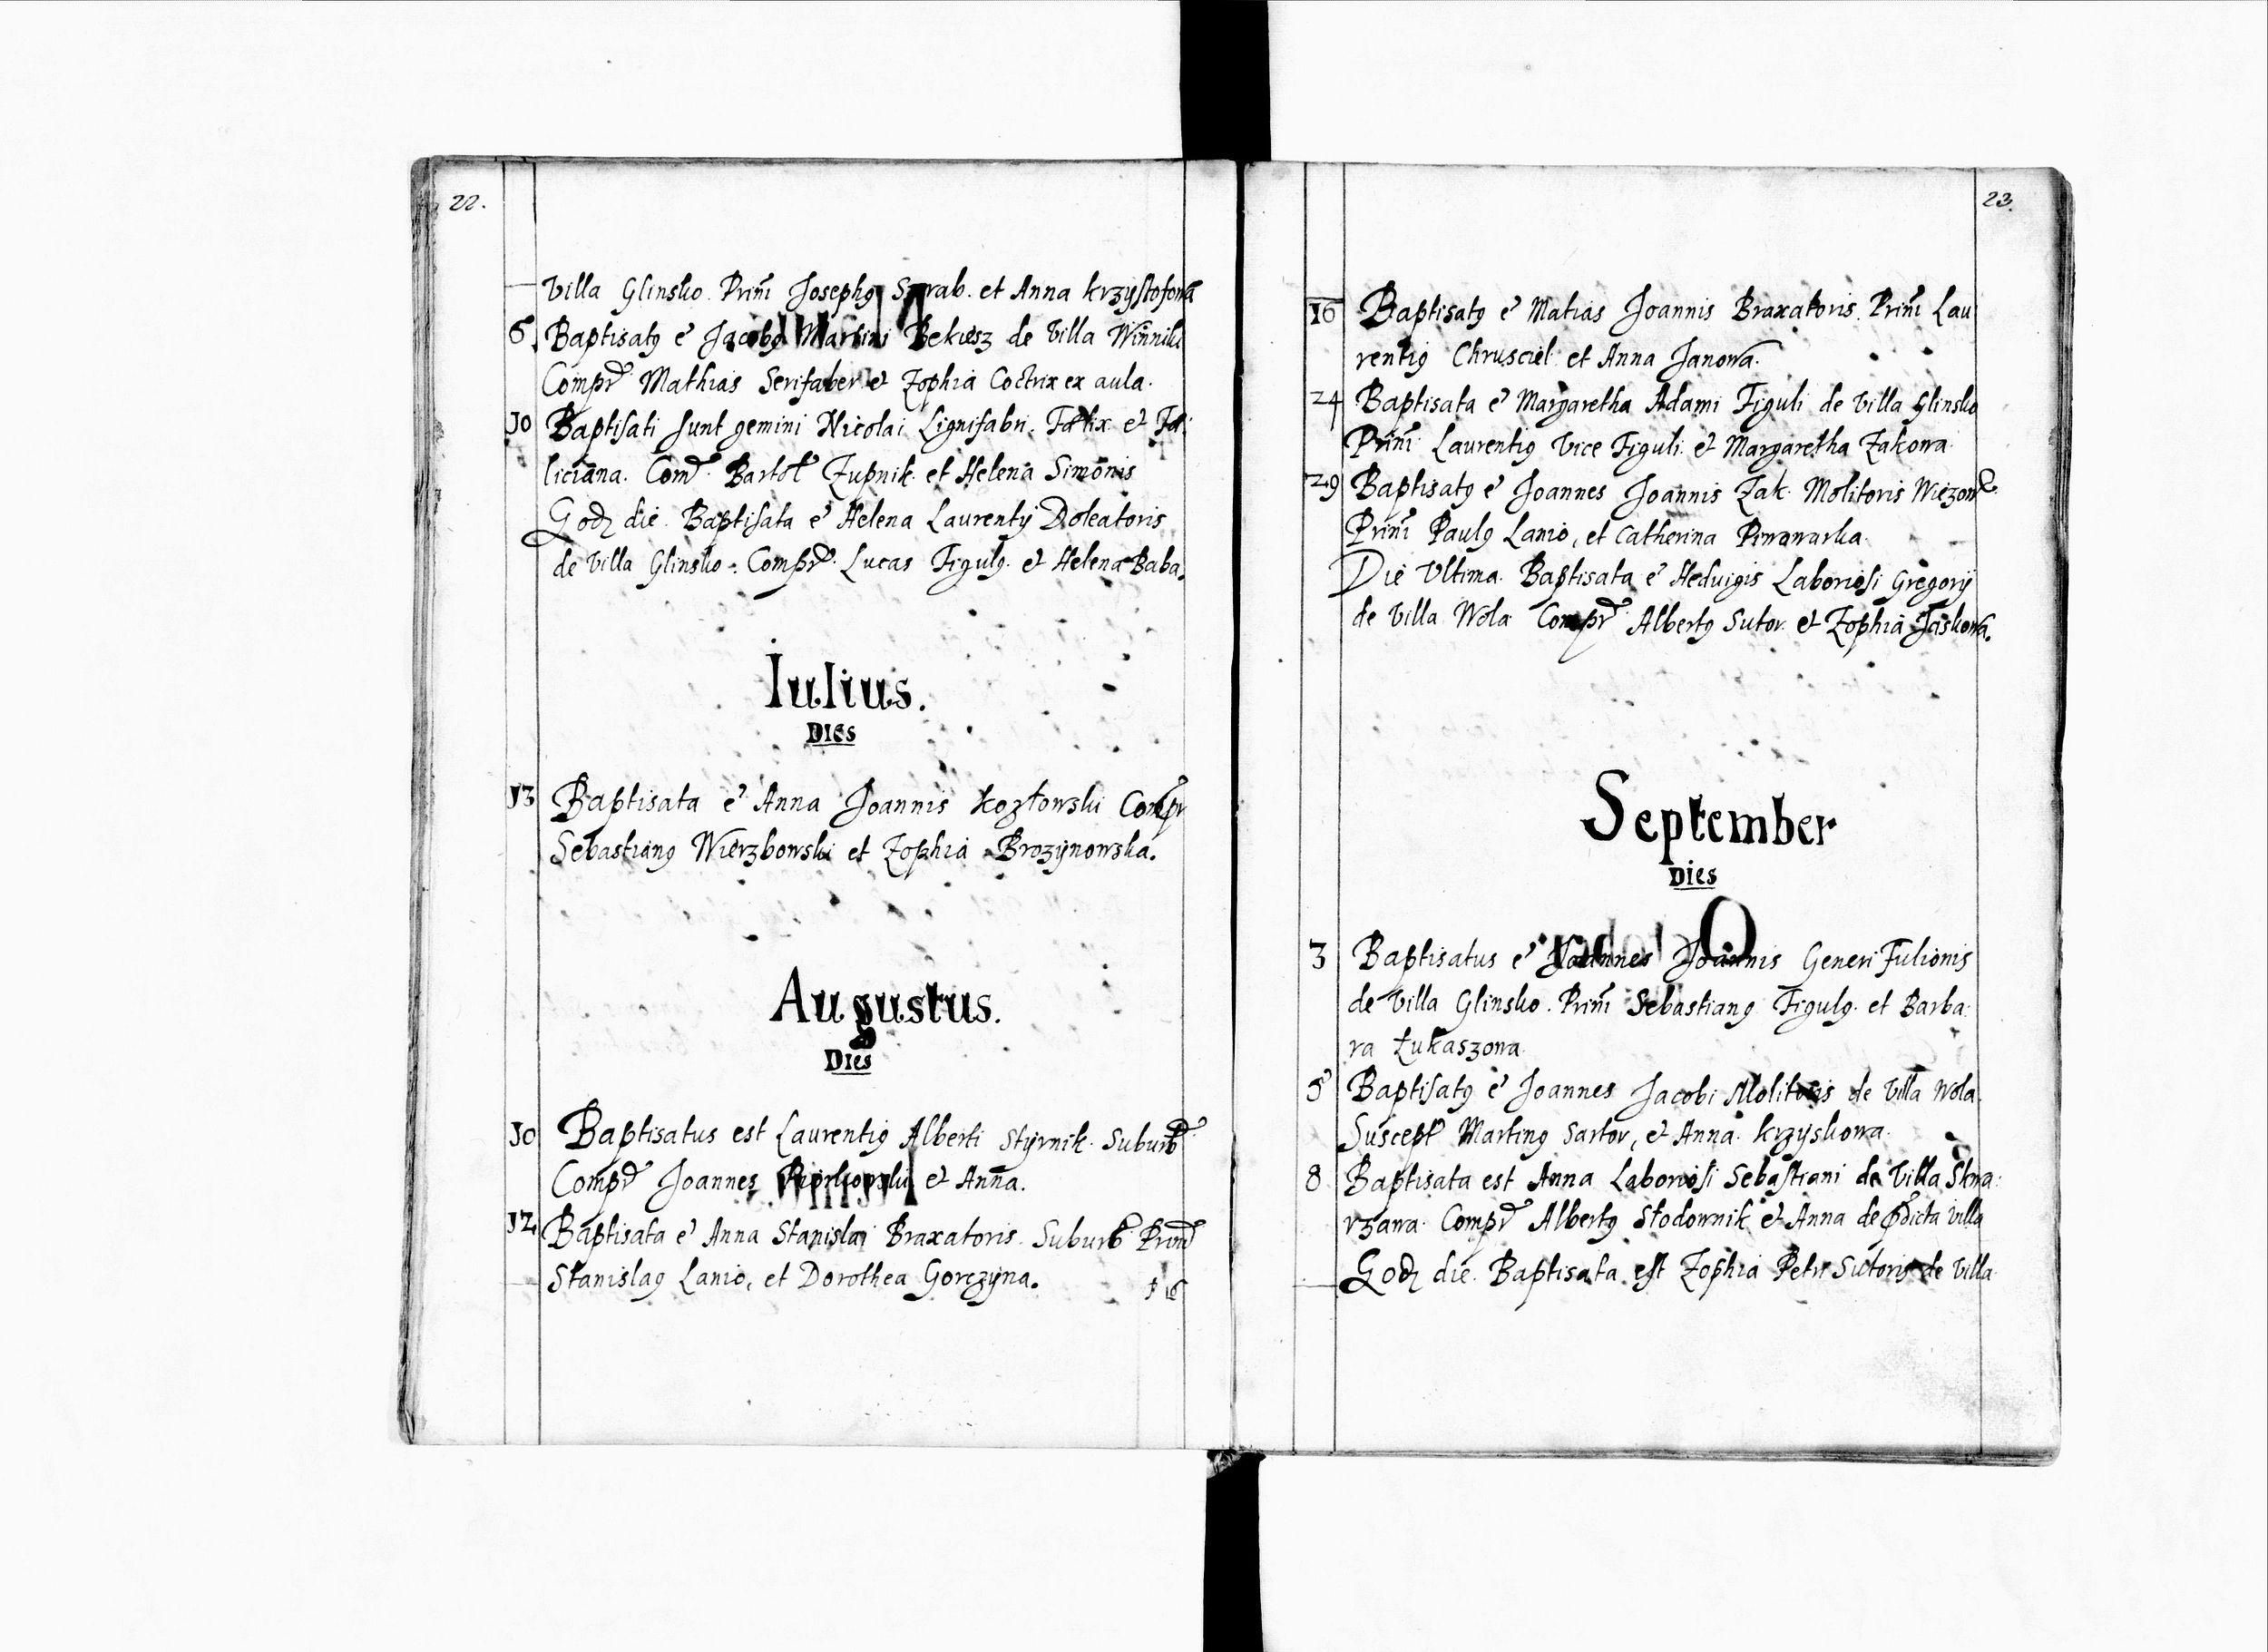 22.
Villa Glinsko. Prim̃ Josephꝰ Szrab. et Anna Krzysztofowa
6. Baptisatꝰ e᷒ Jacobꝰ Martini Bekiesz de Villa Winniki
Compr̃ Mathias Serifaber et Zophia Coctrix ex aula.
10 Baptisati sunt gemini Nicolai Lignifabri. Fœlix et Fœ:
liciana. Com̃ Bartoł Zupnik et Helena Simonis
Eodẽ die. Baptisata e᷒ Helena Laurentij Doleatoris
de Villa Glinsko. Compr̃ Lucas Figulꝰ. et Helena Baba.
Iulius.
Dies
13 Baptisata e᷒ Anna Joannis Kozłowski Compr
Sebastianꝰ Wierzbowski et Zophia Brozynowska.
Augustus.
Dies
10 Baptisatus est Laurentiꝰ Alberti Styrnik. Suburb̃
Compr̃ Joannes et Anna.
12 Baptisata e᷒ Anna Stanislai Braxatoris Suburb̃ Prim̃
Stanislaꝰ Lanio, et Dorothea Gorczyna.
16
23.
16 Baptisatꝰ e᷒ Matias Joannis Braxatoris. Prim̃ Lau
rentiꝰ Chrusciel et Anna Janowa.
24 Baptisata e᷒ Margaretha Adami Figuli de Villa Glinsko
Prim̃ Laurentiꝰ Vice Figuli. et Margaretha Zakowa
29 Baptisatꝰ e᷒ Joannes Joannis Zak. Molitoris
Prim̃ Paulꝰ Lanio, et Catherina Piwowarka.
Die Ultima. Baptisata e᷒ Heduigis Laboriosi Gregorij
de Villa Wola Compr̃ Albertꝰ Sutor et Zophia Jaskowa.
September
Dies
3 Baptisatus e᷒ Joannes Joannis Generi Fulionis
de Villa Glinsko. Prim̃ Sebastianꝰ Figulꝰ. et Barba:
ra Łukaszowa
5 Baptisatꝰ e᷒ Joannes Jacobi Molitoris de Villa Wola.
Suscept̃ Martinꝰ Sartor, et Anna Krzyskowa.
8 Baptisata est Anna Laboriosi Sebastiani de Villa Skwa:
rzawa. Compr̃ Albertꝰ Słodownik et Anna de p̃dicta Villa
Eodẽ die. Baptisata est Zophia Petri Sutoris de Villa